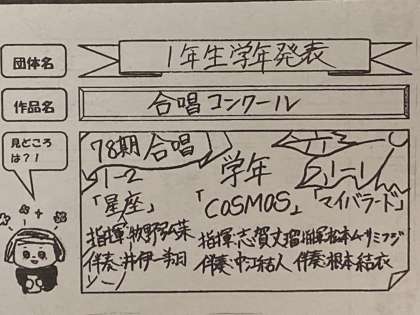 団体名
1年生学年発表
作品名
合唱コンクール
見どころ
は?!
78期 合唱
1-2
「星座」
指揮:牧野
伴奏:井伊
学年
「COSMOS」
指揮:志賀丈瑠
伴奏:中江結人
1-1
「マイバラード」
指揮:松本ムサミフジ
伴奏:根本結衣